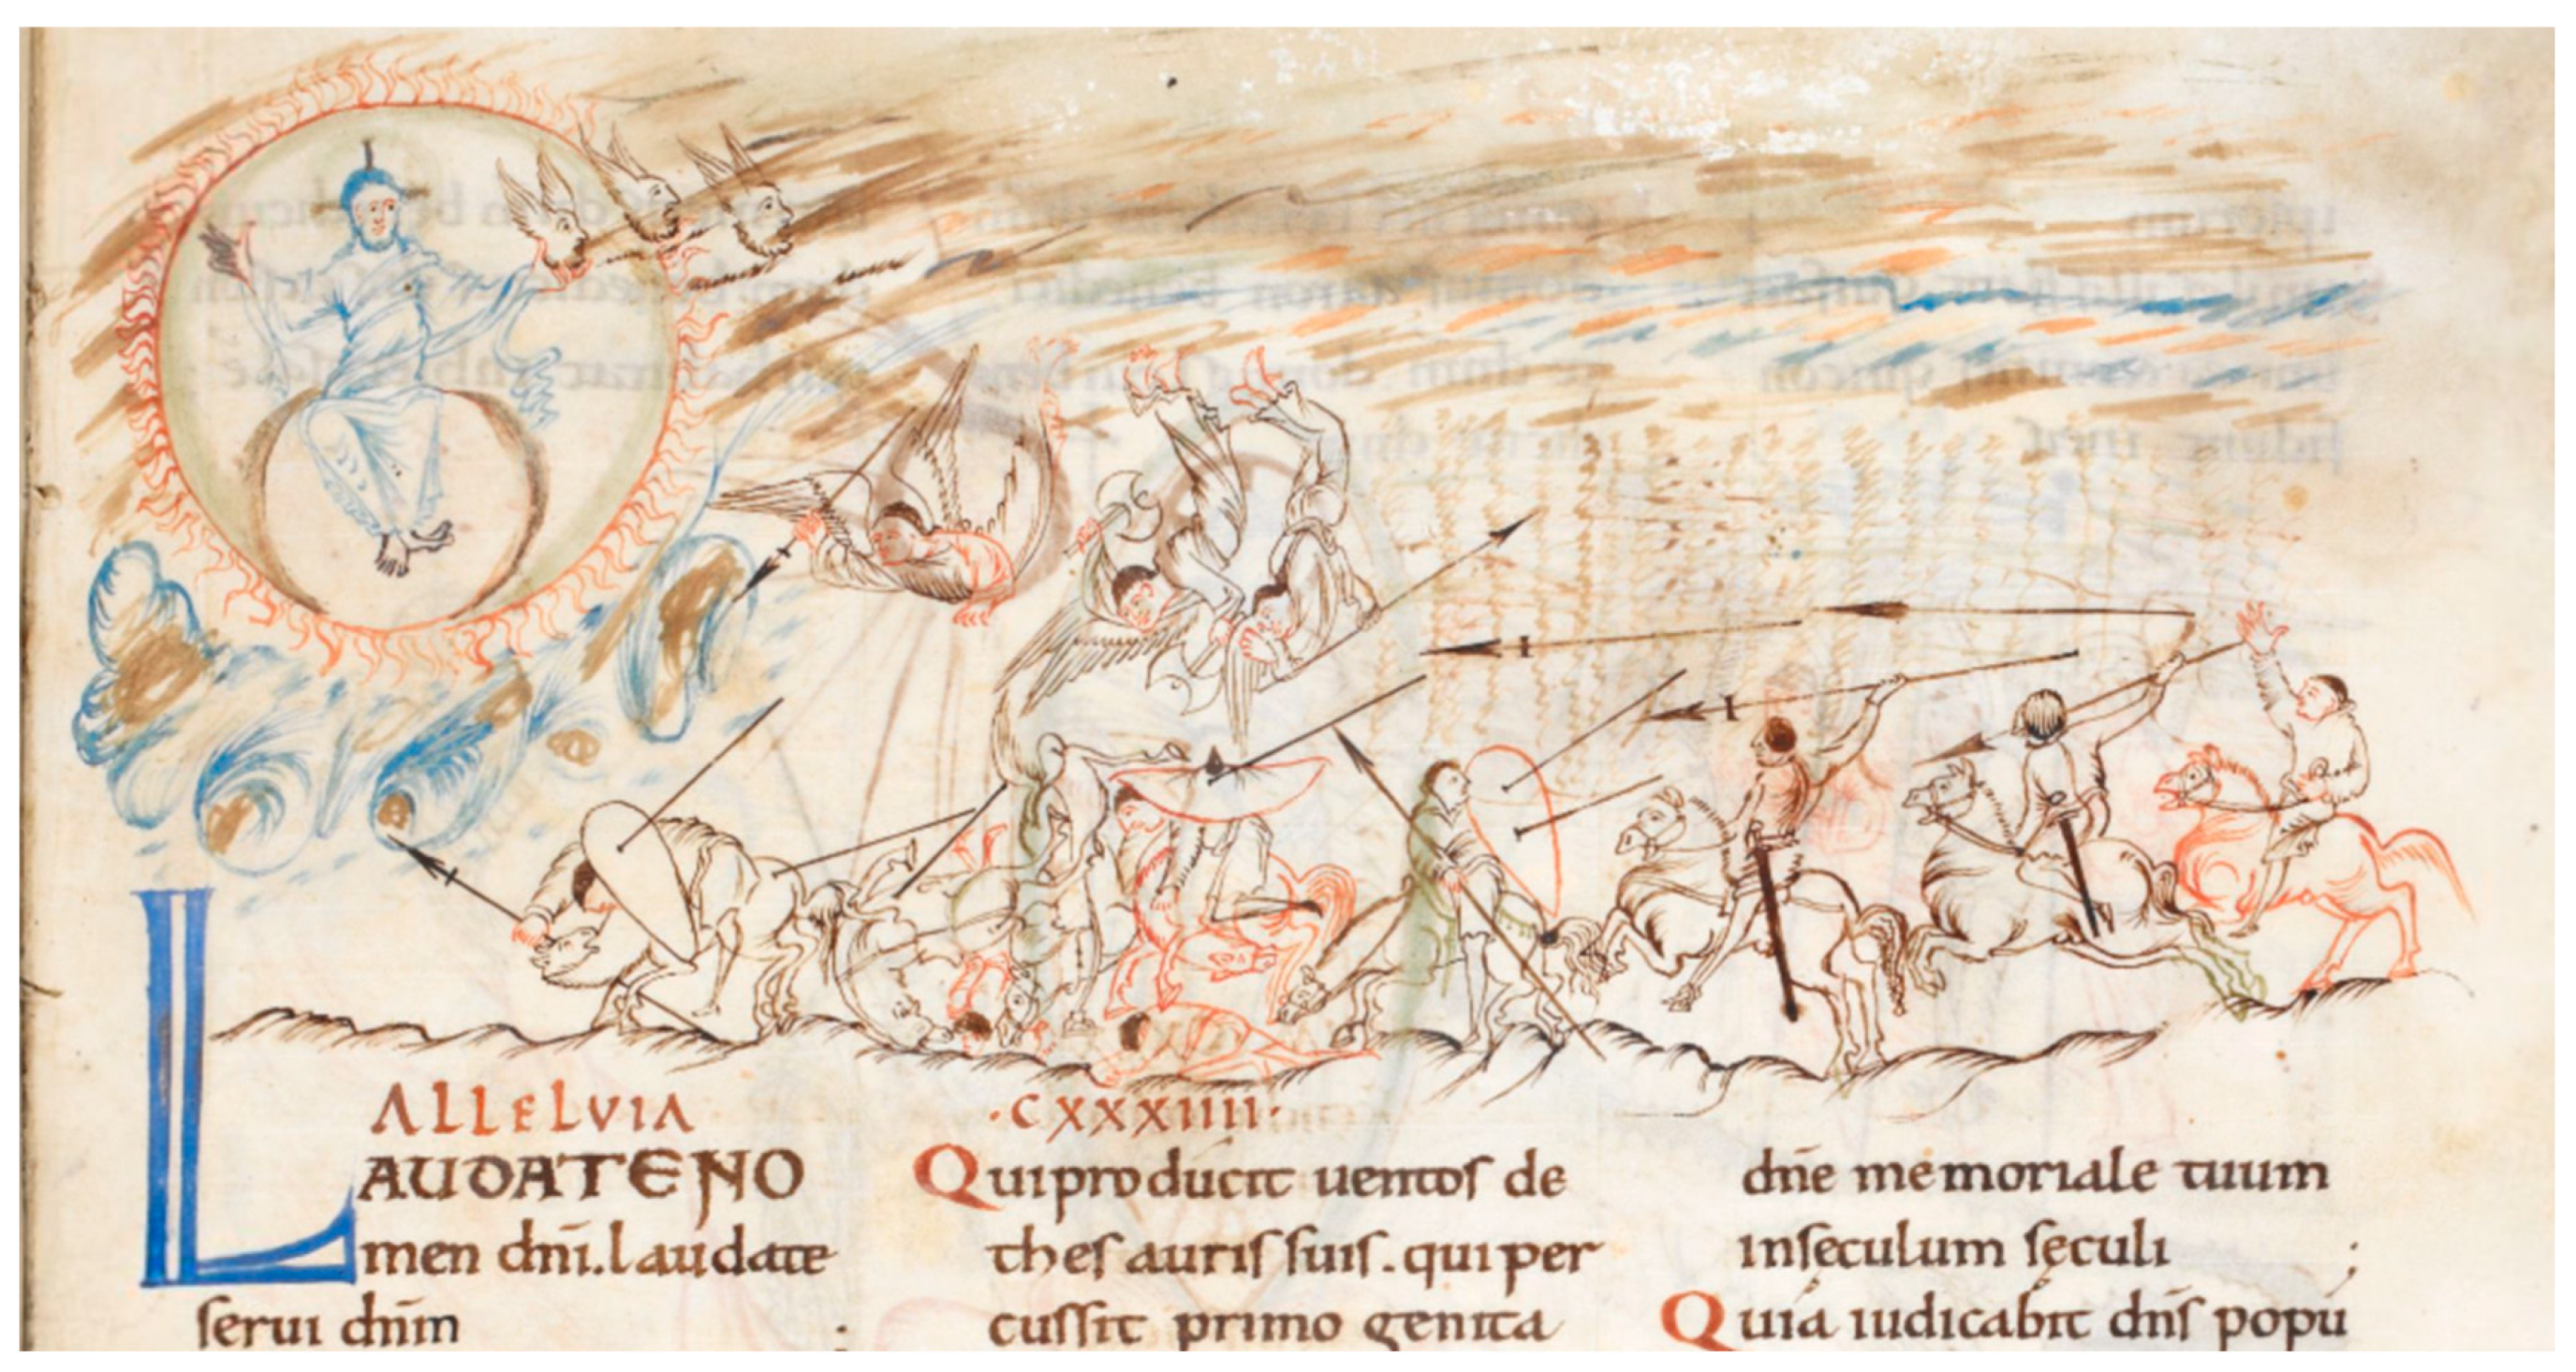 ALLELVIA
·CXXXIIII·
LAUDATENO
men dnī.laudate
serui dnīm
Quiproducit uentos de
thesauris suis.quiper
cussit primo genita
dn̄e memoriale tuum
inseculum seculi
Quia iudicabit dn̄s popu